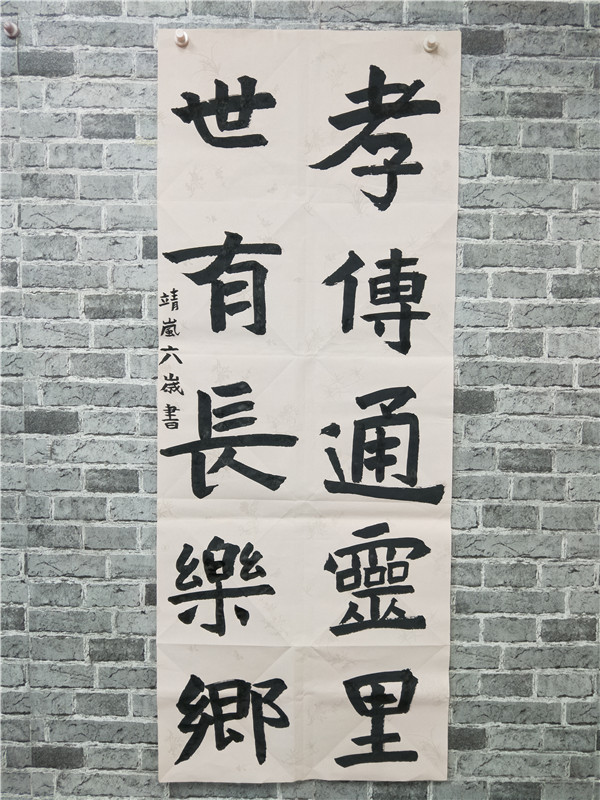 孝傳通靈里
世有長樂鄉
靖嵐六歲書